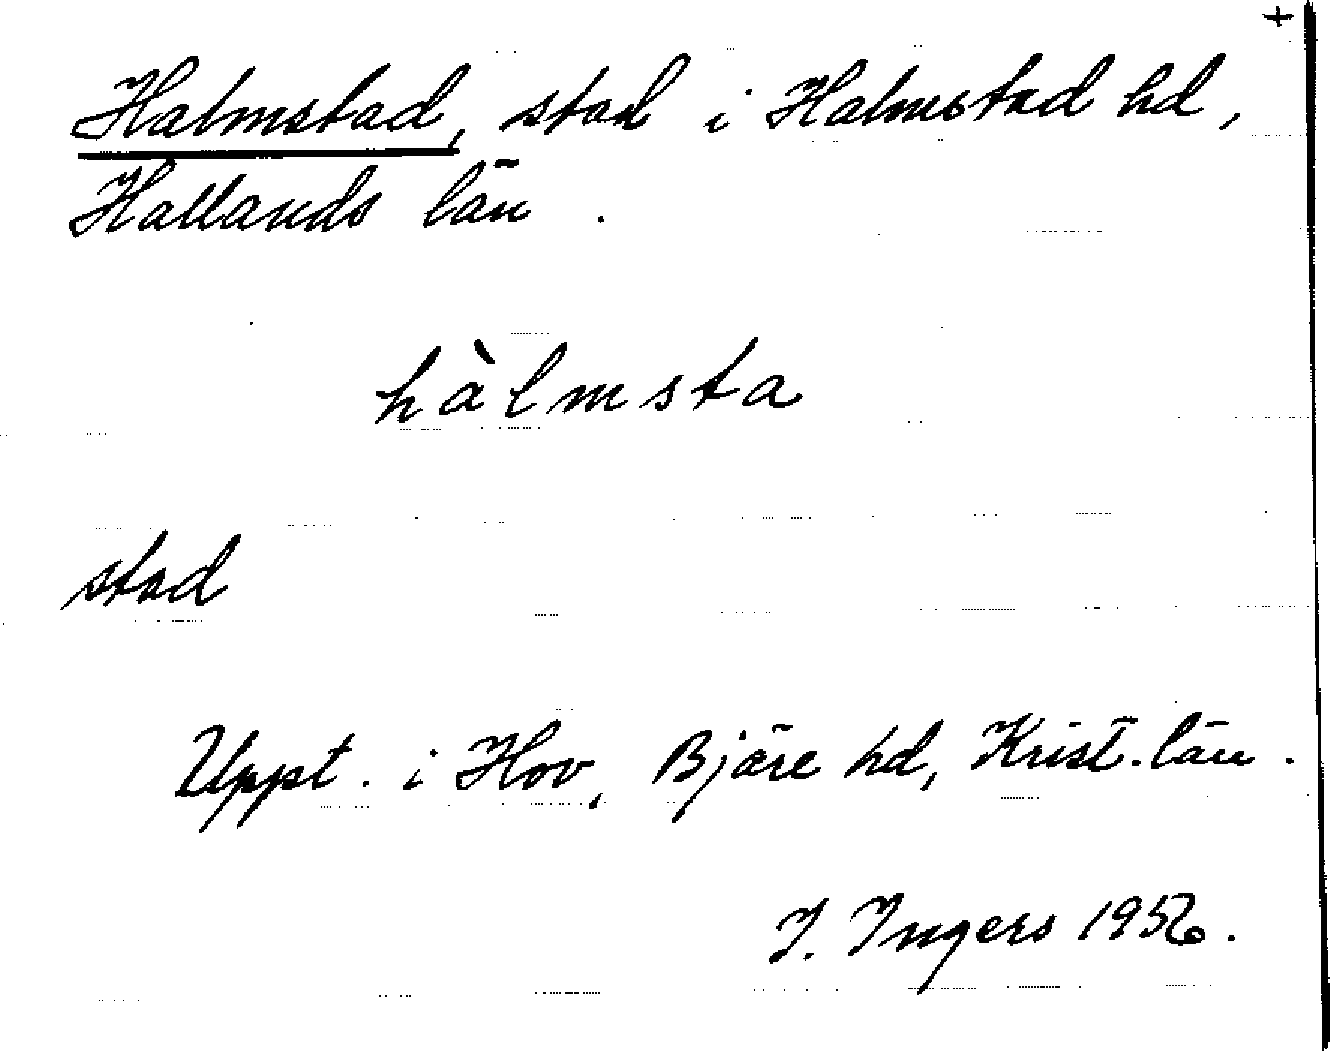 +
Halmstad, stad i Halmstad hd,
Hallands län.
hàlmsta
stad
Uppt. i Hov, Bjäre hd, Krist. län.
I. Ingers 1956.